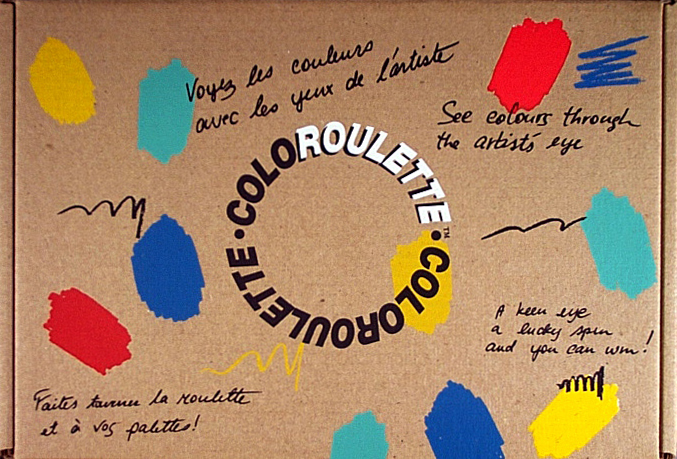 Voyez les couleurs
avec les yeux de l'artiste
See colours through
the artist's eye
COLOROULETTE™ • COLOROULETTE •
A keen eye
a lucky spin
and you can win!
Faites tourner la roulette
et à vos palettes!